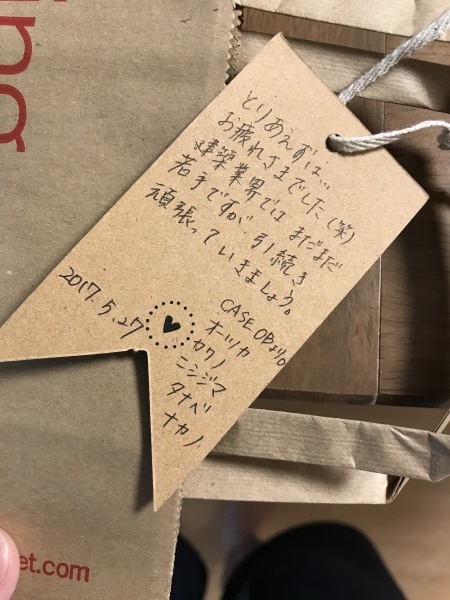 とりあえずは...
お疲れさまでした(笑)
建築業界では まだまだ
若手ですが、引続き
頑張って いきましょう。
CASE OBより
オーツカ
カワノ
ニシジマ
タナベ
ナカノ
2017.5.27
ing
et.com